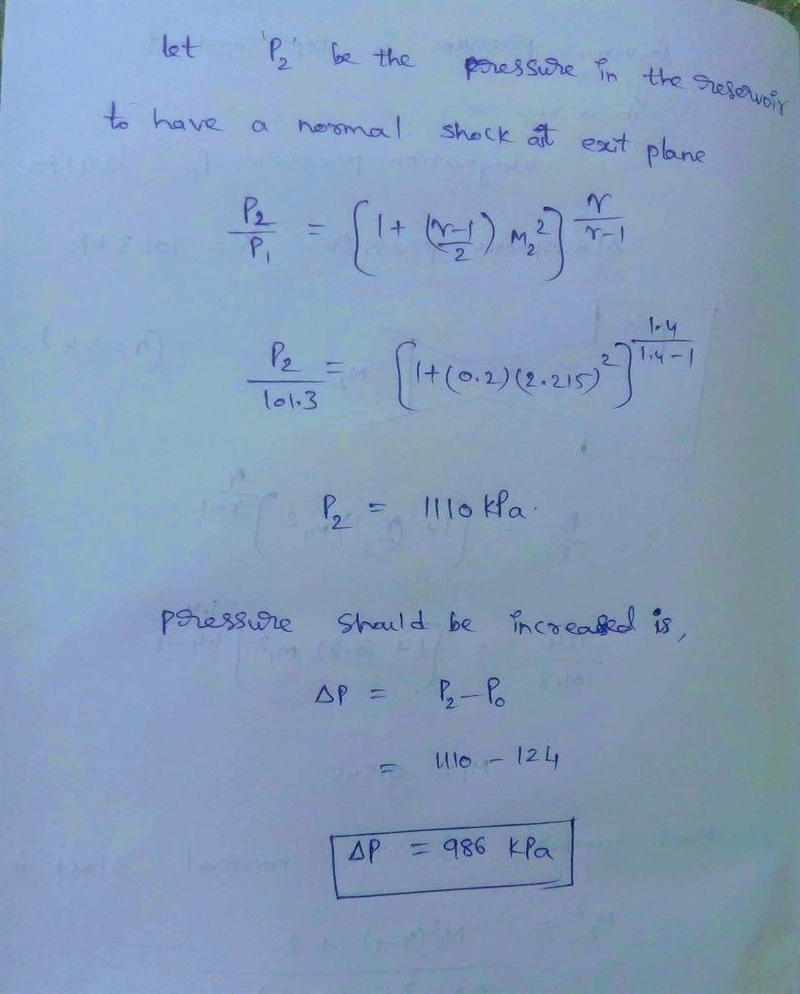 let 'P2' be the pressure in the reservoir
to have a normal shock at exit plane
P2/P1 = [1 + (γ-1/2) M2^2]^γ/γ-1
P2/101.3 = [1+(0.2)(2.215)^2]^1.4/1.4-1
P2 = 1110 kPa.
pressure should be increased is,
ΔP = P2-P0
= 1110 - 124
ΔP = 986 KPa